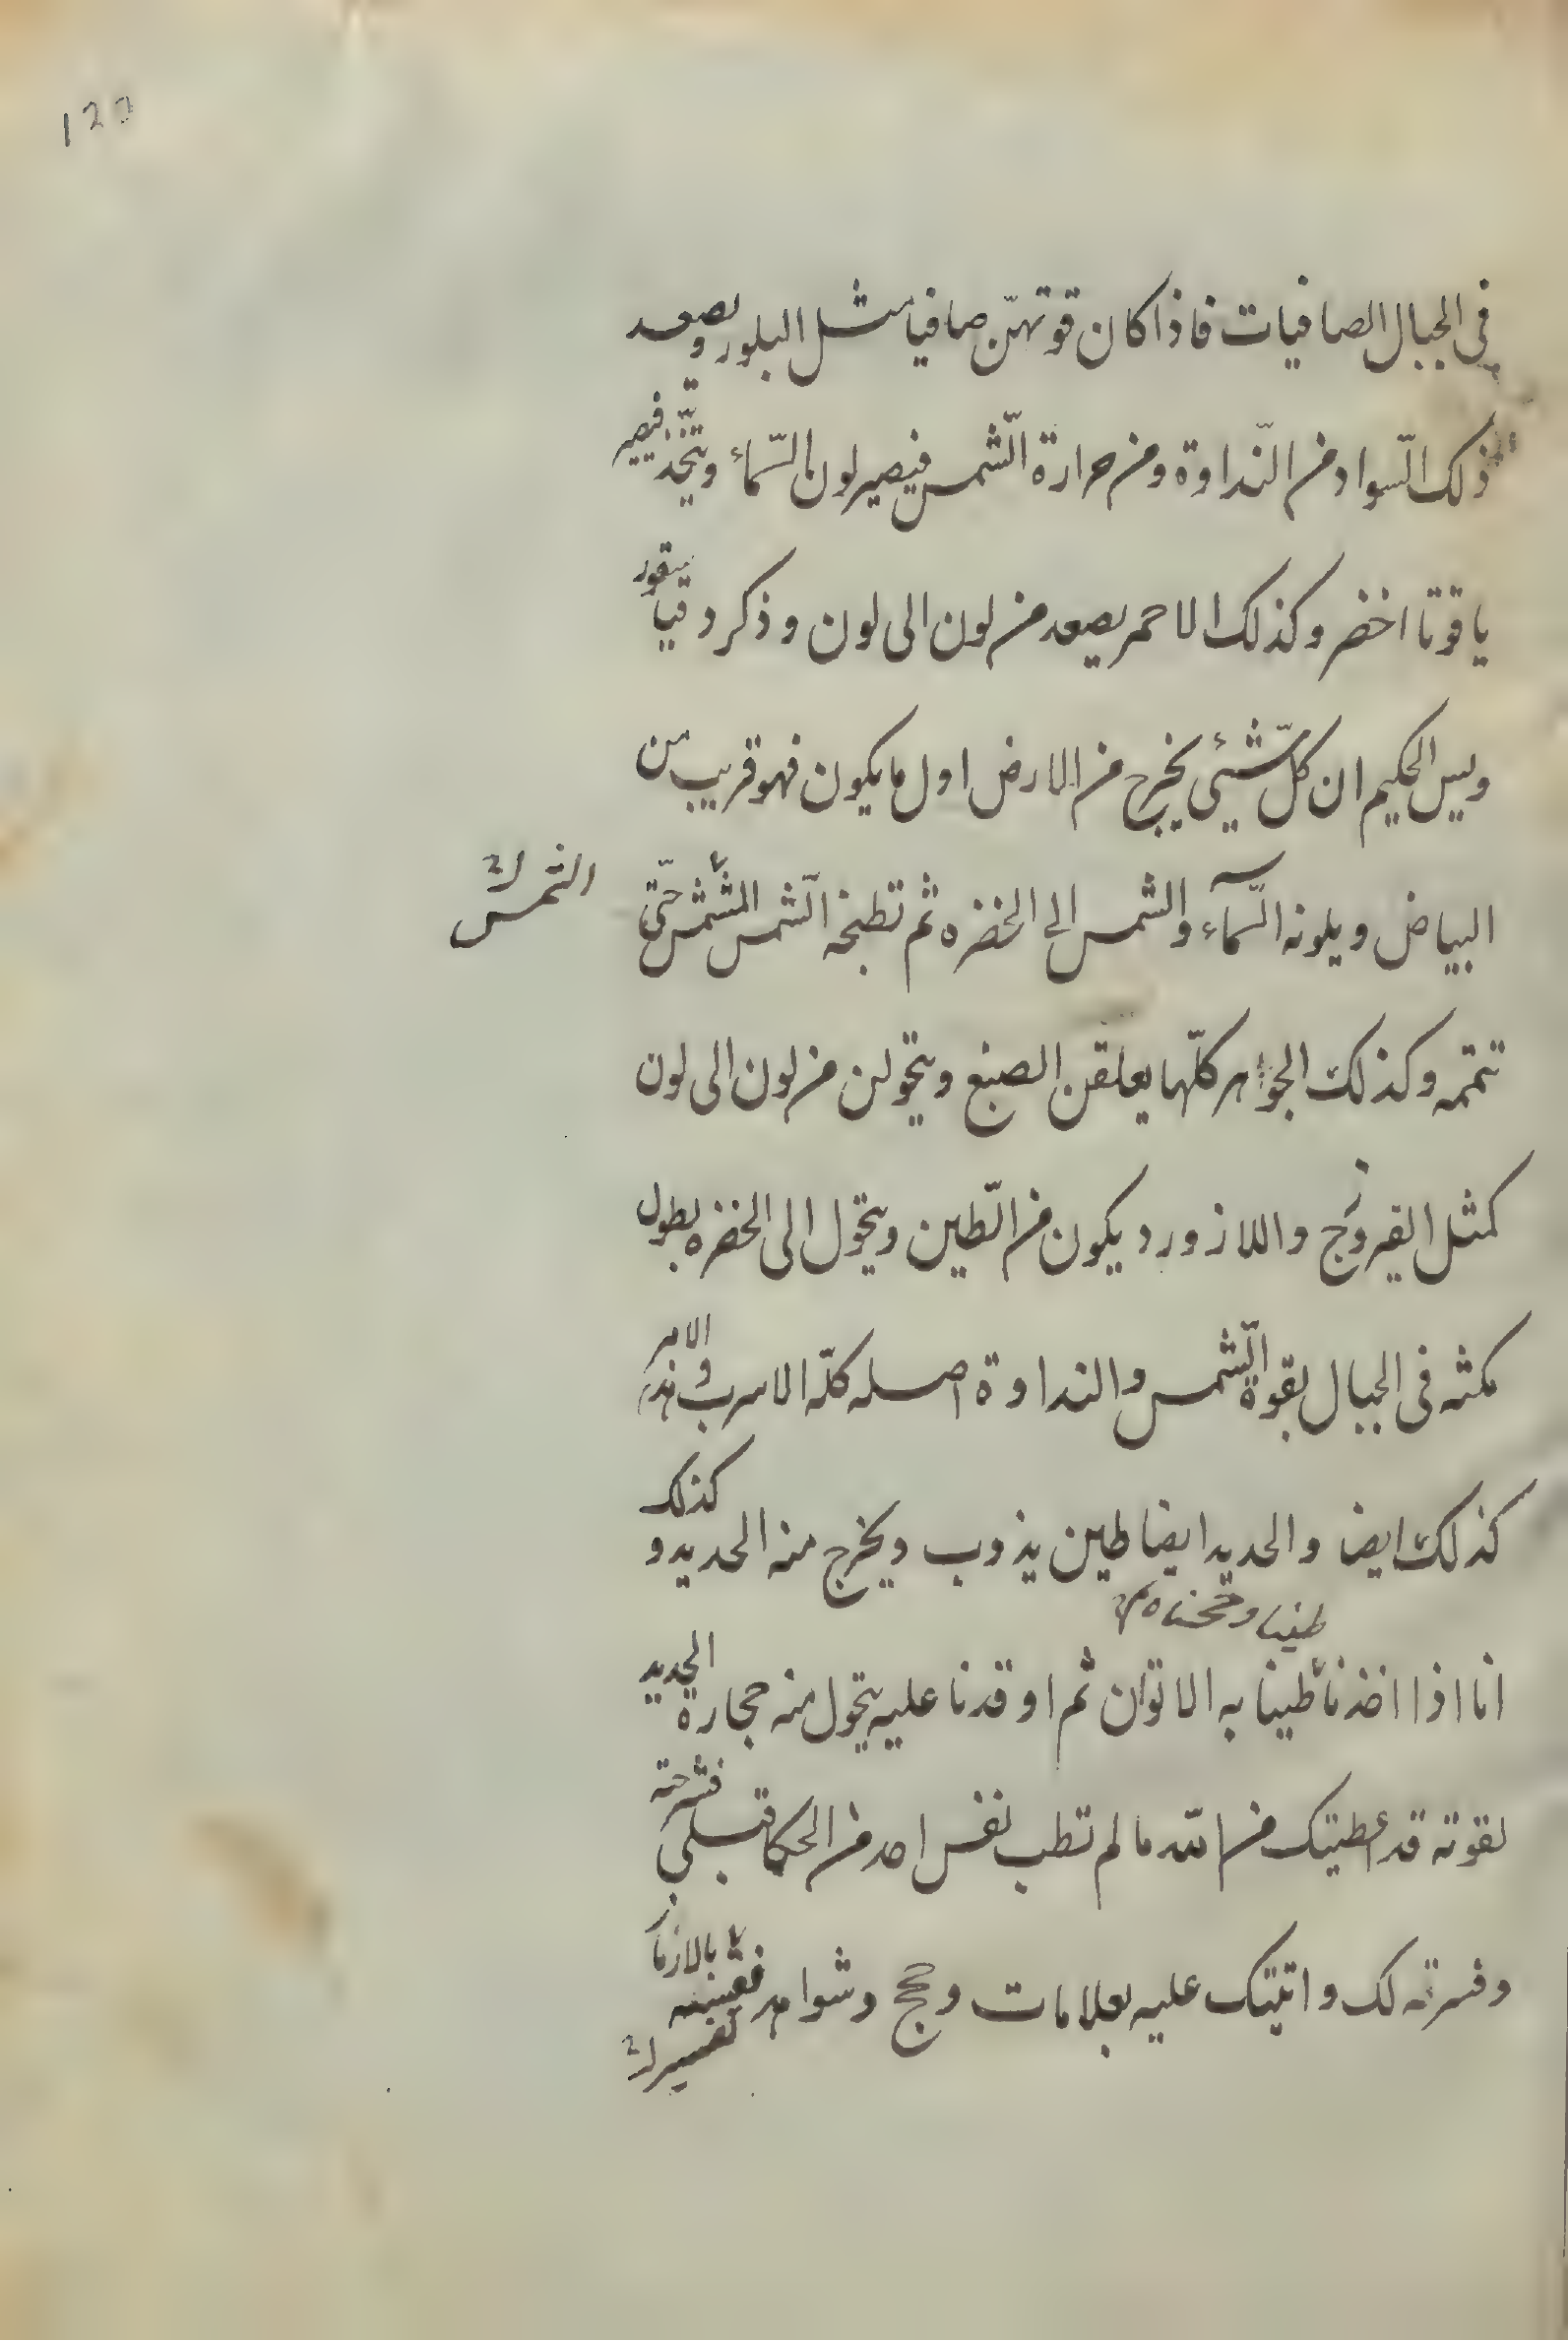 في الجبال الصافيات فاذا كان قوتهنّ صافيا مثل البلور ويصعد
ذلك السّواد من النّداوة ومن حرارة الشّمس فيصير لون السّماء ويتّخذ فيصير
ياقوتا اخضر وكذلك الاحمر يصعد من لون الى لون وذكر دقيانقور
وليس الحكيم ان كلّ شيئ يخرج من الارض اول ما يكون فهو قريب من
البياض ويلونه السّماء والشمس الى الخضره ثم تطبخه الشّمس المشمش حتّى
الشمس
تتمّه وكذلك الجواهر كلّها يعلقن الصبغ ويتحولن من لون الى لون
كمثل الفيروزج واللازورد يكون من الطّين ويتحوّل الى الخضره بطول
مكثه في الجبال بقوة الشّمس والنداوة اصله كلّه الاسرب والامر
كذلك ايضا والحديد ايضا طين يذوب ويخرج منه الحديد وكذلك
انا اذا اخذنا طينا به الاتوان ثم اوقدنا عليه يتحول منه حجارة الحديد
لقوته قد اعطيتك من الله ما لم تطب نفس احد من الحكما قبلى فشرحته
وفسرته لك واتيتك عليه بعلامات وحجج وشواهد